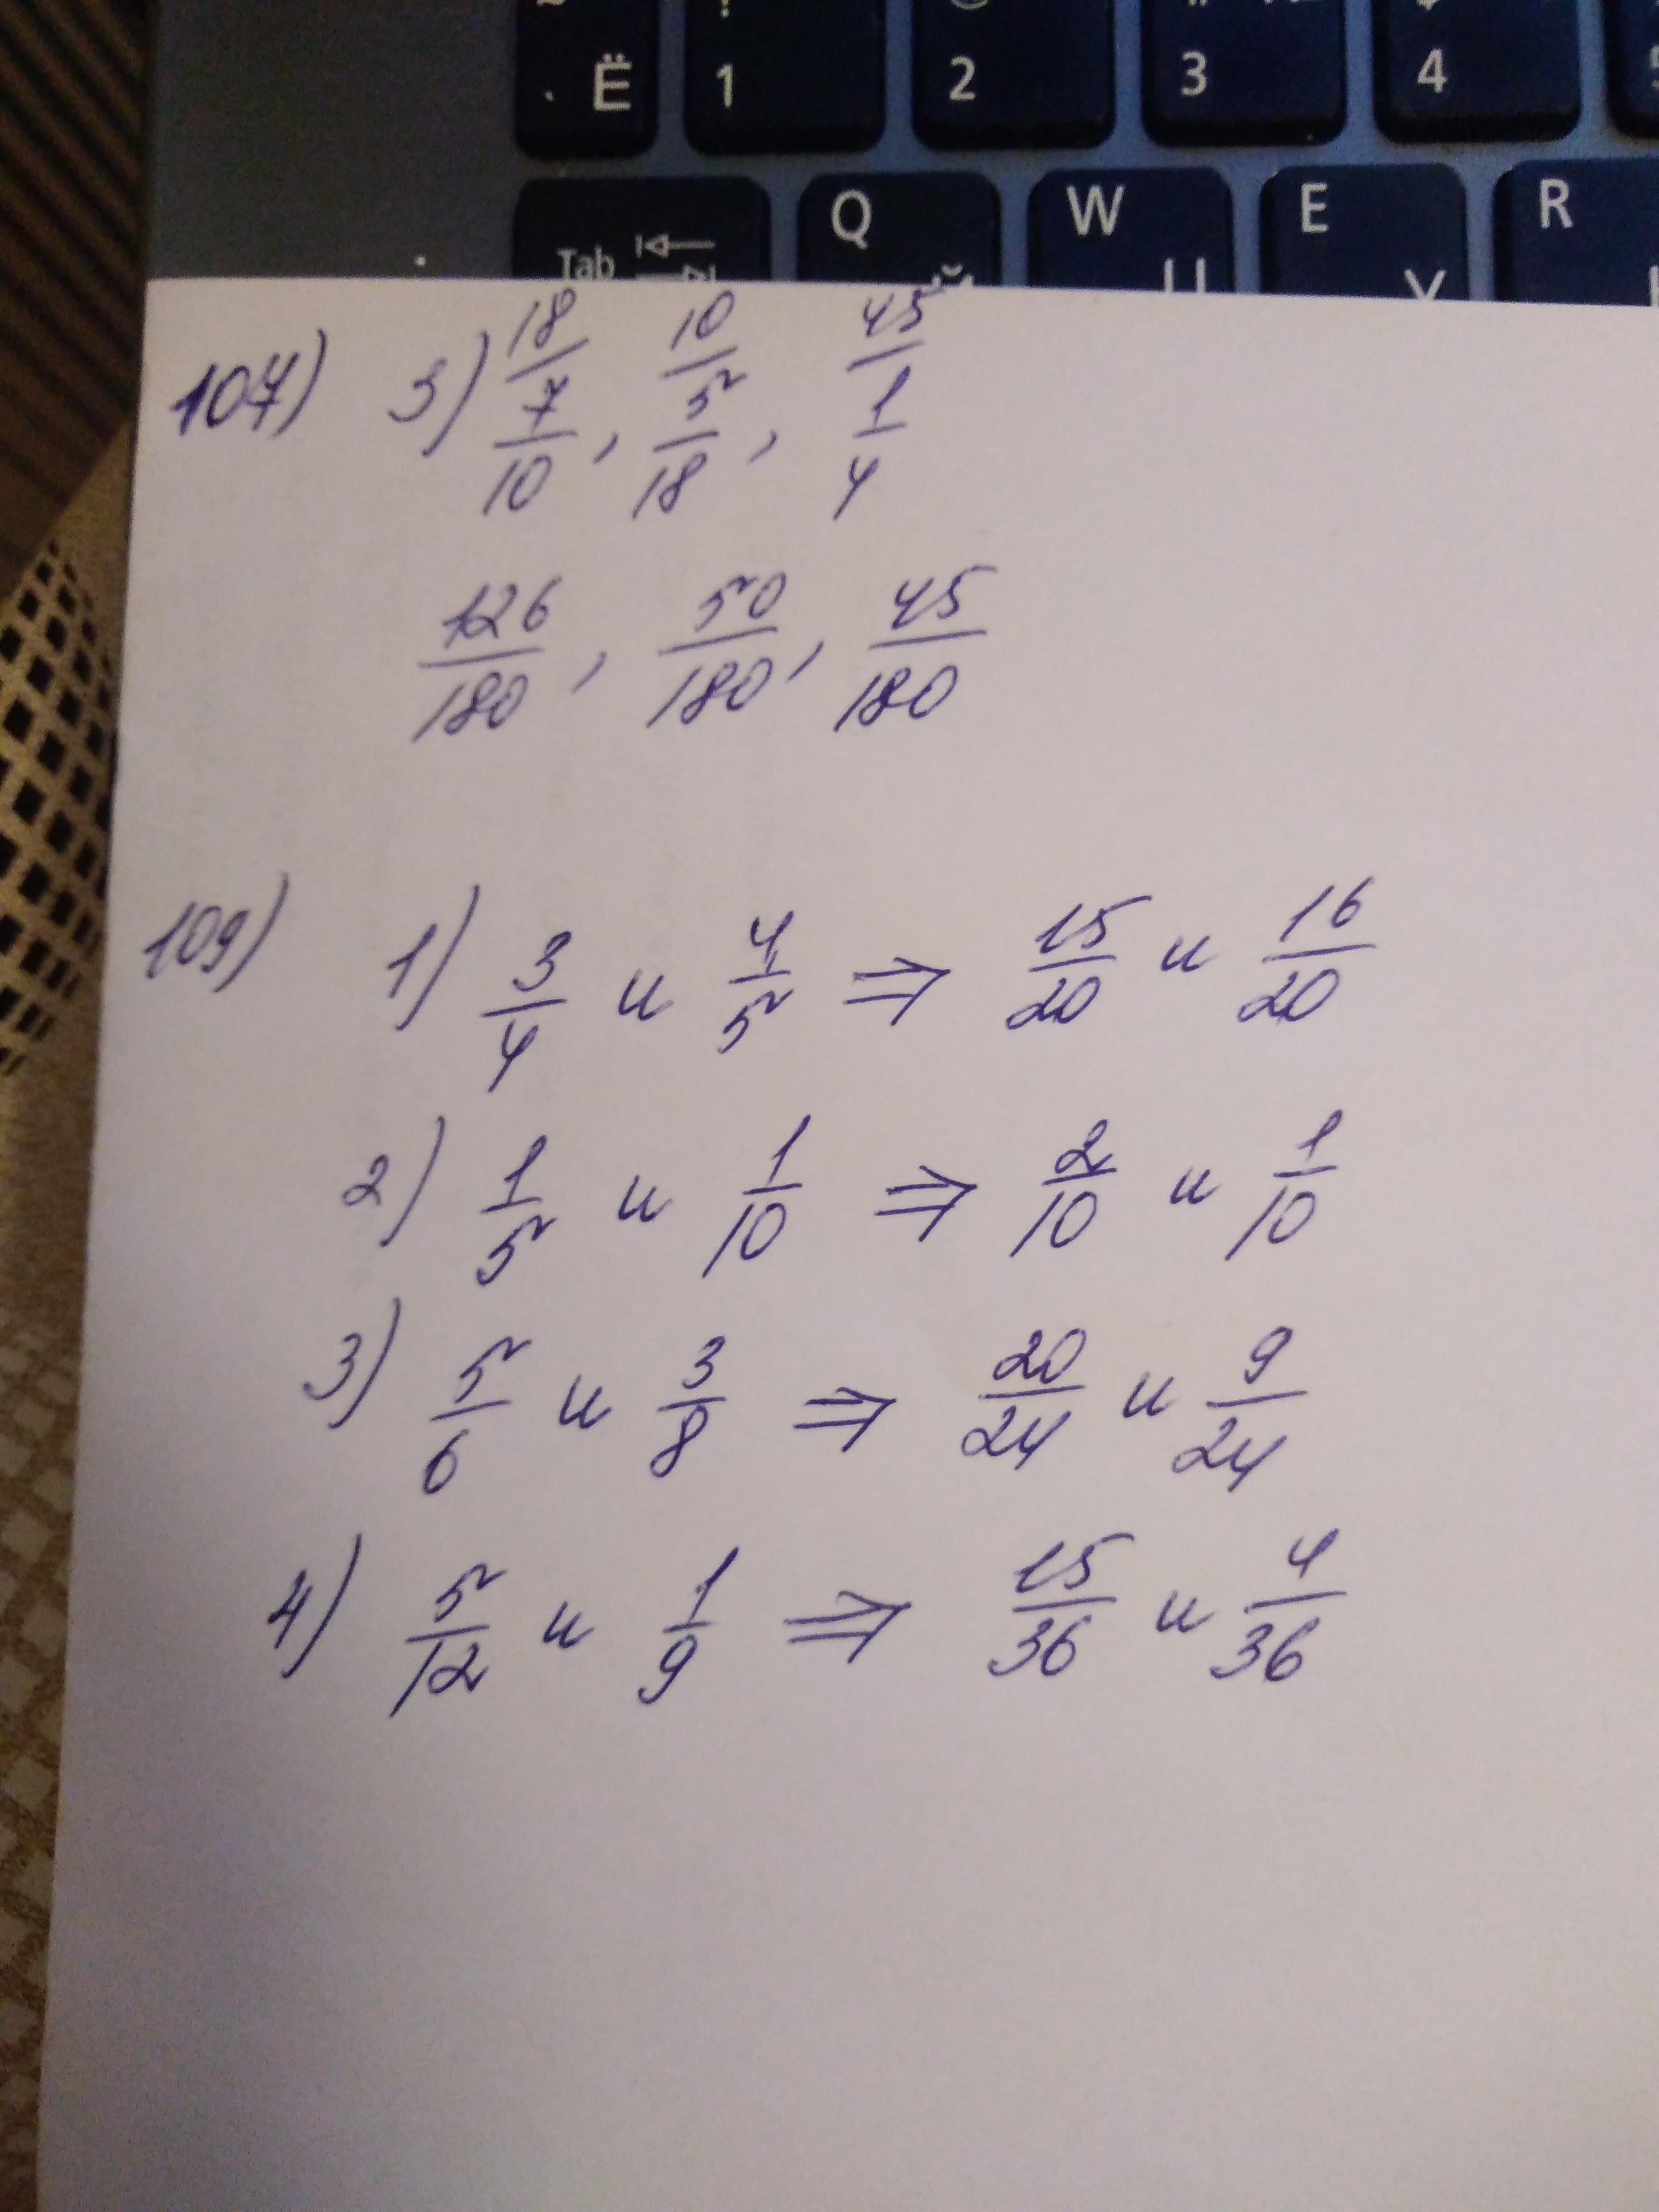 Ё 1 2 3 4
Tab Q W E R
107) 3) 18/ 10/ 45/
7/10, 5/18, 1/4
126/180, 50/180, 45/180
109) 1) 3/4 и 4/5 ⇒ 15/20 и 16/20
2) 1/5 и 1/10 ⇒ 2/10 и 1/10
3) 5/6 и 3/8 ⇒ 20/24 и 9/24
4) 5/12 и 1/9 ⇒ 15/36 и 4/36